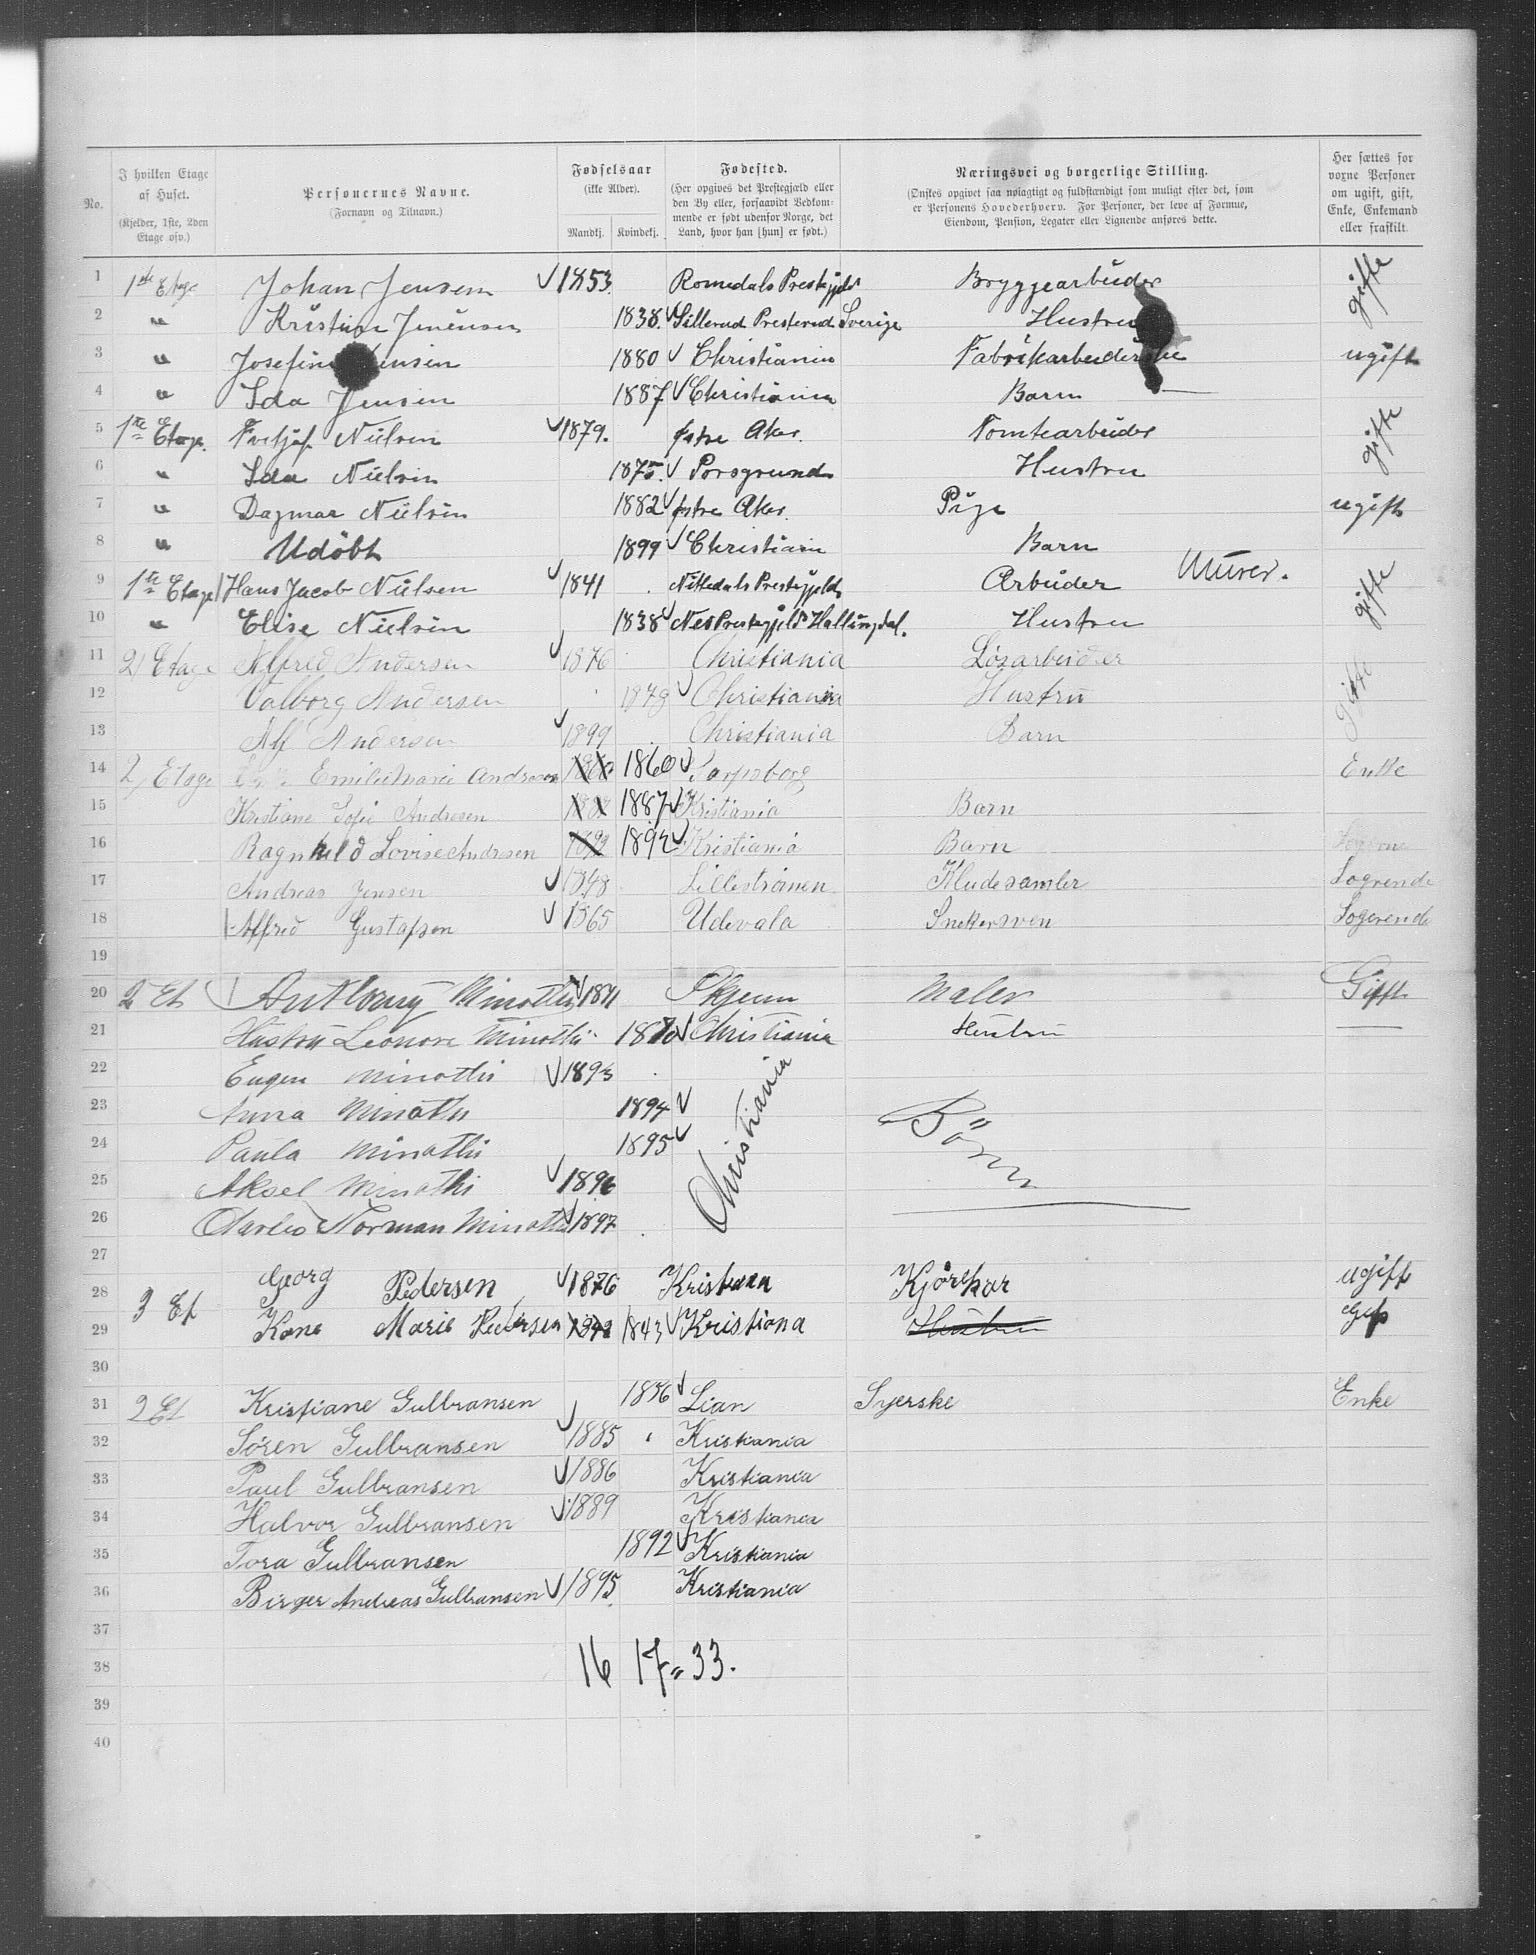 No.
I hvilken Etage af Huset.
(Kjelder, 1ste, 2den Etage osv.)
Personernes Navne.
(Fornavn og Tilnavn.)
Fødselsaar
(ikke Alder).
Mandkj. Kvindekj.
Fødested.
(Her opgives det Prestegjæld eller den By eller, forsaavidt Vedkommende er født udenfor Norge, det Land, hvor han [hun] er født.)
Næringsvei og borgerlige Stilling.
(Ønskes opgivet saa nøiagtigt og fuldstændigt som muligt efter det, som er Personens Hovederhverv. For Personer, der leve af Formue, Eiendom, Pension, Legater eller Lignende anføres dette.
Her sættes for voxne Personer om ugift, gift, Enke, Enkemand eller fraskilt.
1 1ste Etage Johan Jensen 1853 Romedals Prestgjeld Bryggearbeider gifte
2 " Kristine Jensen 1838. Sillerud Sverige Hustru
3 " Josefine Jensen 1880 Christiania Fabrikarbeiderske ugift
4 " Ida Jensen 1887 Christiania Barn
5 1ste Etage. Fritjof Nielsen 1879. østre Aker. Tomtearbeider gifte
6 " Ida Nielsen 1875. Porsgrund Hustru
7 " Dagmar Nielsen 1882 østre Aker. Pige ugift
8 " Udöbt 1899 Christiania Barn
9 1ste Etage Hans Jacob Nielsen 1841 Nittedals Prestgjeld Arbeider Murer. gifte
10 " Elise Nielsen 1838 Nes Prestegjeld Hallingdal. Hustru
11 2 Etage Alfred Andersen 1876 Christiania Løsarbeider gifte
12 Valborg Andersen 1878 Christiania Hustru
13 Alf Andersen 1899 Christiania Barn
14 2 Etage Emilie Marie Andresen 1860 Sarpsborg Enke
15 Kristiane Sofie Andresen 1887 Kristiania Barn
16 Ragnhild Lovise Andresen 1892 Kristiania Barn
17 Andreas Jensen 1848 Lillestrømen Kludesamler Logerende
18 Alfred Gustafsen 1865 Udevala Snekersven Logerende
19
20 2 Et Anthony Minothi 1871 Skjeun Maler Gift
21 Hustru Leonore Minothi 1870 Christiania Hustru
22 Eugen Minothi 1893
23 Anna Minothi 1894
24 Paula Minothi 1895 Christiania Börn
25 Aksel Minothi 1896
26 Charles Norman Minothi 1897
27
28 3 Et Georg Pedersen 1876 Kristiania Kjørekar ugift
29 Kone Marie Pedersen 1843 Kristiana Hustru Gift
30
31 2 Et Kristiane Gulbransen 1856 Lian Syerske Enke
32 Sören Gulbransen 1885 Kristiania
33 Paul Gulbransen 1886 Kristiania
34 Halvor Gulbransen 1889 Kristiania
35 Tora Gulbransen 1892 Kristiania
36 Birger Andreas Gulbransen 1895 Kristiania
37
38 16 17 = 33.
39
40